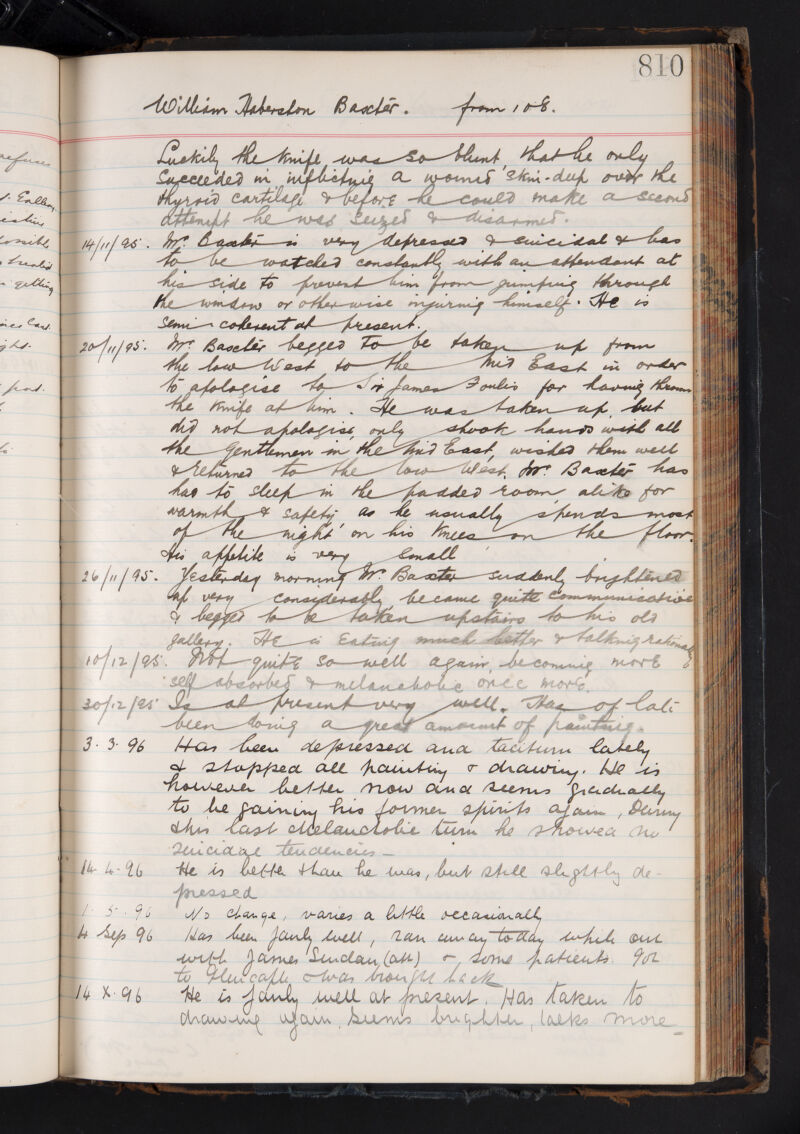 810
William Haberston Baxter. from 108.
Luckily the knife was so blunt that he only
succeeded in inflicting a wound skin-deep over the
thyroid cartilage & before he could make a second
attempt he was seized & disarmed.
14/11/95. Mr. Baxter is very depressed & suicidal & has
to be watched constantly with an attendant at
his side to prevent him from jumping through
the window or otherwise injuring himself. He is
semi-coherent at present.
20/11/95. Mr. Baxter begged to be taken up from
the low West to the Mid East in order
to apologise to Sir James Foulis for having thrown
the knife at him. He was taken up, but
did not apologise, only shook hands with all
the gentlemen in the Mid East, wished them well
& returned to the low West. Mr. Baxter has
had to sleep in the padded room, alike for
warmth & safety, as he usually spends most
of the night on his knees on the floor.
His appetite is very small
26/11/95. Yesterday morning Mr. Baxter suddenly brightened
up very considerably, became quite communicative
& begged to be taken upstairs to his old
gallery. He is eating much better & talking rationally
10/12/95. Not quite so well again, becoming more
self absorbed & melancholic once more.
30/12/95 Is at present very well. Has of late
been doing a great amount of painting.
3. 3. 96 Has been depressed and taciturn lately
& stopped all painting & drawing. He is
however better now and seems gradually
to be gaining his former spirits again, During
this last Melancholic turn he showed no
suicidal tendencies –
14. 4. 96 He is better than he was, but still slightly de-
pressed
1. 5. 96 No change, varies a little occasionally
4 Sep 96 Has been fairly well, ran away today while out
with James (att) & some patients. Got
to & was brought back
14 X. 96 He is fairly well at present. Has taken to
drawing again, seems brighter, talks more